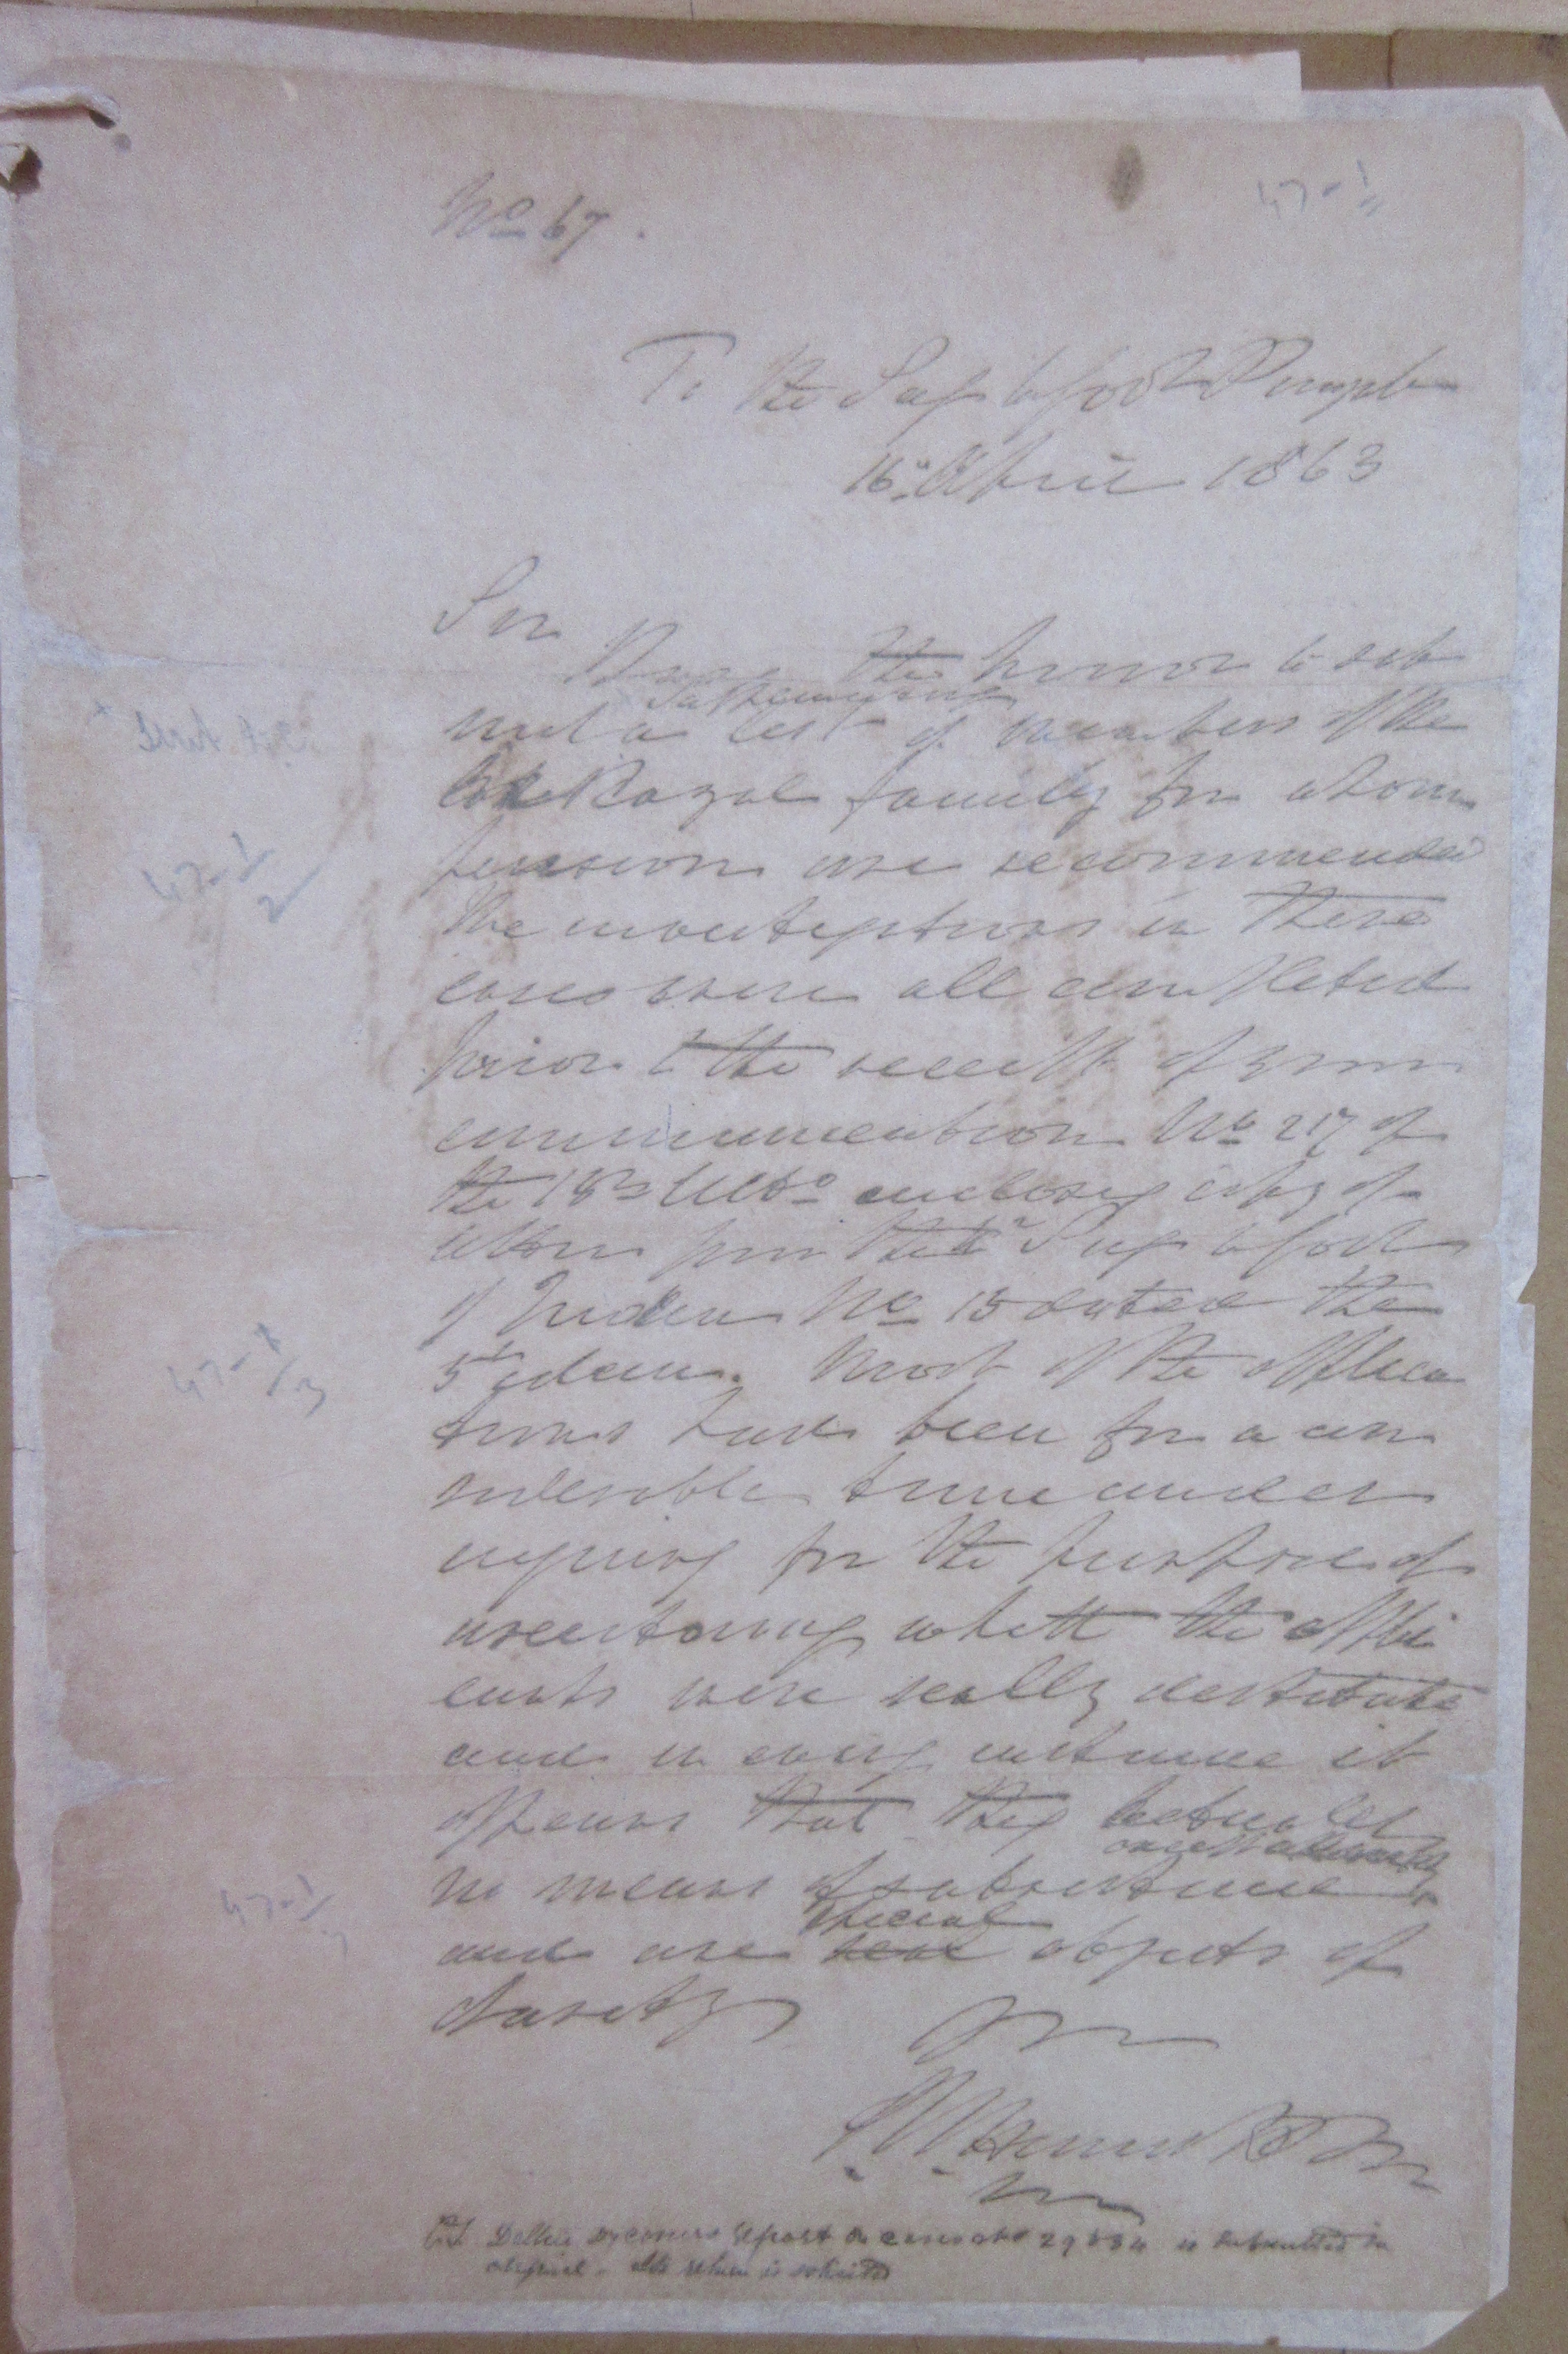 No 67.
47-1
To the Secy to Govt Punjab
16th April 1863
Sir
I have the honor to sub
mit a list of members of the
late Royal family for whom
pensions are recommended
The investigations in these
cases were all completed
prior to the receipt of your
communication No 217 of
the 18th Ulto enclosing copy of
letter from the Secy to Govt
of India No 15 dated the
5th idem. Most of the applica
tions have been for a con
siderable time under
inquiry for the purpose of
ascertaining whether the appli
cants were really destitute
and in every instance it
appears that they
no means of subsistence
special
and are real objects of
charity
47-1/2
47-1/3
47-1
P.S. Delhi Commrs Report on cases Nos 29 & 34 is submitted in
original. Its return is solicited